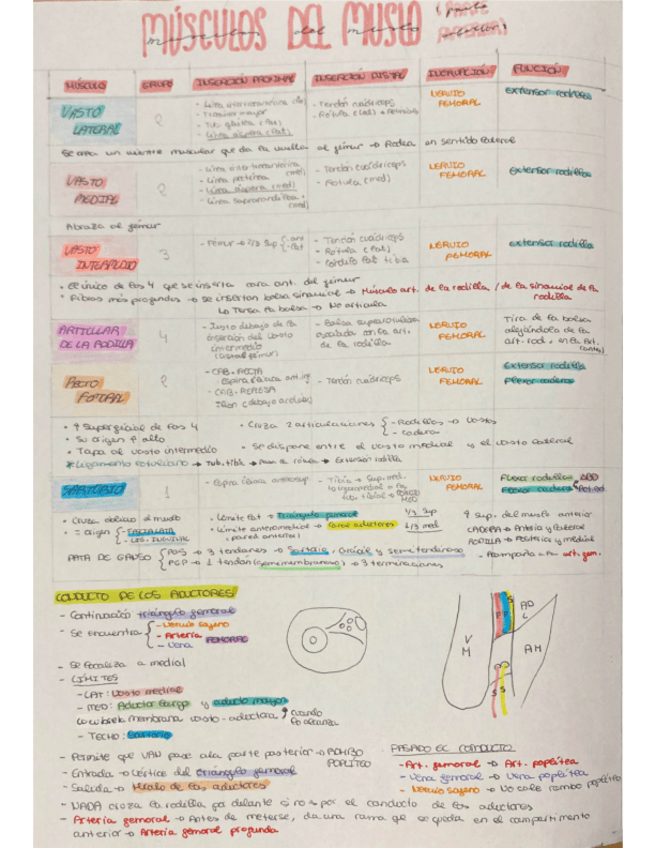 MÚSCULOS DEL MUSLO (parte anterior)
MÚSCULO GRUPO INSERCIÓN PROXIMAL INSERCIÓN DISTAL INERVACIÓN FUNCIÓN
VASTO LATERAL 2
- Línea intertrocantérica
- Trocánter mayor
- Tub. glútea
- Línea áspera (lat)
- Tendón cuádriceps
- Rótula (lat)
NERVIO FEMORAL
extensor rodillas
muscular que da la vuelta al fémur → Rodea en sentido lateral
VASTO MEDIAL 2
- Línea intertrocantérica (med)
- Línea pectínea
- Línea áspera (med)
- Línea supracondílea (med)
- Tendón cuádriceps
- Rótula (med)
NERVIO FEMORAL
extensor rodilla
Abraza al fémur
VASTO INTERMEDIO 3
- Fémur → 2/3 sup { - ant - lat
- Tendón cuádriceps
- Rótula (lat)
- Cóndilo lat tibia
NERVIO FEMORAL
extensor rodilla
• El único de los 4 que se inserta cara ant. del fémur
• Fibras más profundas → se insertan bolsa sinovial → Músculo art. de la rodilla / de la sinovial de la rodilla
Lo Tensa la bolsa → No articula
ARTICULAR DE LA RODILLA 4
- Justo debajo de la inserción del vasto intermedio (distal fémur)
- Bolsa suprarotuliana en la art. de la rodilla
NERVIO FEMORAL
Tira de la bolsa alejándola de la art. rod.
RECTO FEMORAL 2
- CAB. RECTA
Espina ilíaca ant. inf
- CAB. REFLEJA
Ilion (debajo
- Tendón cuádriceps
NERVIO FEMORAL
Extensor rodilla
Flexor cadera
• + Superficial de los 4
• Su origen + alto
• Tapa al vasto intermedio
• Cruza 2 articulaciones { - Rodillas → vastos - cadera
• Se dispone entre el vasto medial y el vasto lateral
* Ligamento rotuliano → Tub. tibia → → Extensión rodilla
SARTORIO 1
- Espina ilíaca anterosup
- Tibia → Sup. med.
NERVIO FEMORAL
Flexor rodillas
Flexor cadera ABD Rot. ext
• Cruza oblicuo al muslo
• = origen { - LIG. INGUINAL
• Límite lat = Triángulo femoral 1/3 sup
• Límite anteromedial → Canal aductores 2/3 med
(pared anterior)
+ sup. del muslo anterior
CADERA → Anterior y lateral
RODILLA → Posterior y medial
- Acompaña art. fem.
PATA DE GANSO { PGS → 3 tendones → Sartorio, Grácil y semitendinoso
PGP → 1 tendón (semimembranoso) → 3 terminaciones
CONDUCTO DE LOS ADUCTORES
- Continuación triángulo femoral
- Se encuentra { - Nervio safeno - Arteria - Vena FEMORAL
- Se focaliza a medial
- LÍMITES
- LAT: Vasto medial
- MED: Aductor largo y aductor mayor
membrana vasto-aductora, cuando lo alcanza
- TECHO: Sartorio
V M
S
AD L
AM
S S
- Permite que VAN pase a la parte posterior → ROMBO POPLÍTEO
- Entrada → vértice del triángulo femoral
- Salida → Hiato de los aductores
PASADO EL CONDUCTO
- Art. femoral → Art. poplítea
- Vena femoral → Vena poplítea
- Nervio safeno → No sale rombo poplíteo
- NADA cruza la rodilla por delante si no es por el conducto de los aductores
- Arteria femoral → Antes de meterse, da una rama que se queda en el compartimento
anterior → Arteria femoral profunda